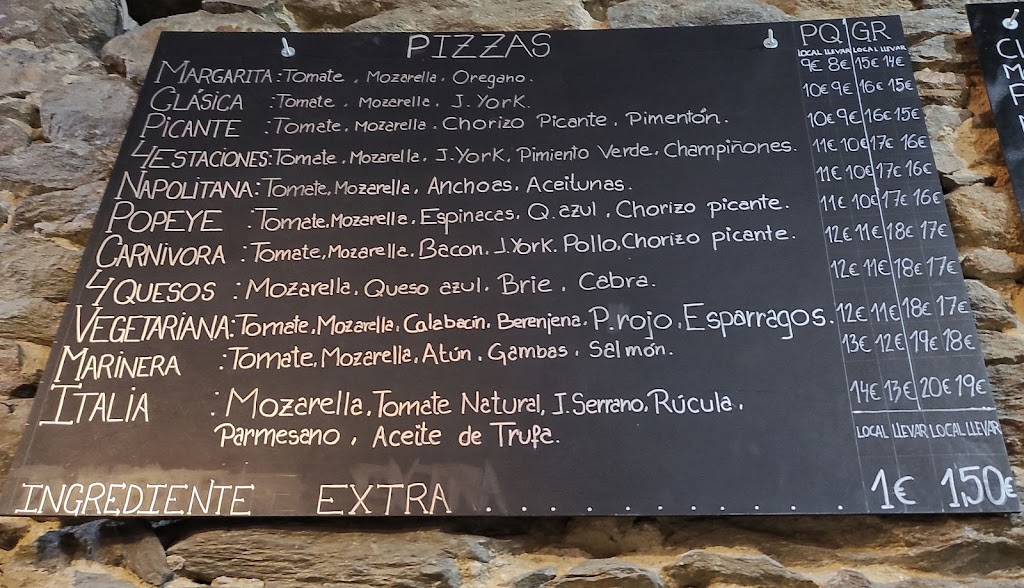 PIZZAS PQ GR
LOCAL LLEVAR LOCAL LLEVAR
MARGARITA: Tomate, Mozarella. Oregano. 9€ 8€ 15€ 14€
CLÁSICA : Tomate. Mozarella. J. York. 10€ 9€ 16€ 15€
PICANTE : Tomate. Mozarella. Chorizo Picante. Pimentón. 10€ 9€ 16€ 15€
4ESTACIONES: Tomate. Mozarella. J. York. Pimiento Verde. Champiñones. 11€ 10€ 17€ 16€
NAPOLITANA: Tomate, Mozarella. Anchoas. Aceitunas. 11€ 10€ 17€ 16€
POPEYE : Tomate. Mozarella. Espinacas. Q. azul. Chorizo picante. 11€ 10€ 17€ 16€
CARNIVORA : Tomate. Mozarella. Bacon. J. York. Pollo. Chorizo picante. 12€ 11€ 18€ 17€
4 QUESOS : Mozarella. Queso azul. Brie. Cabra. 12€ 11€ 18€ 17€
VEGETARIANA: Tomate. Mozarella. Calabacin. Berenjena. P. rojo. Esparragos. 12€ 11€ 18€ 17€
MARINERA : Tomate, Mozarella, Atún. Gambas. Salmón. 13€ 12€ 19€ 18€
ITALIA : Mozarella. Tomate Natural, J. Serrano, Rúcula. 14€ 13€ 20€ 19€
Parmesano, Aceite de Trufa.
LOCAL LLEVAR LOCAL LLEVAR
INGREDIENTE EXTRA . . . . . . . . . . . . 1€ 1,50€